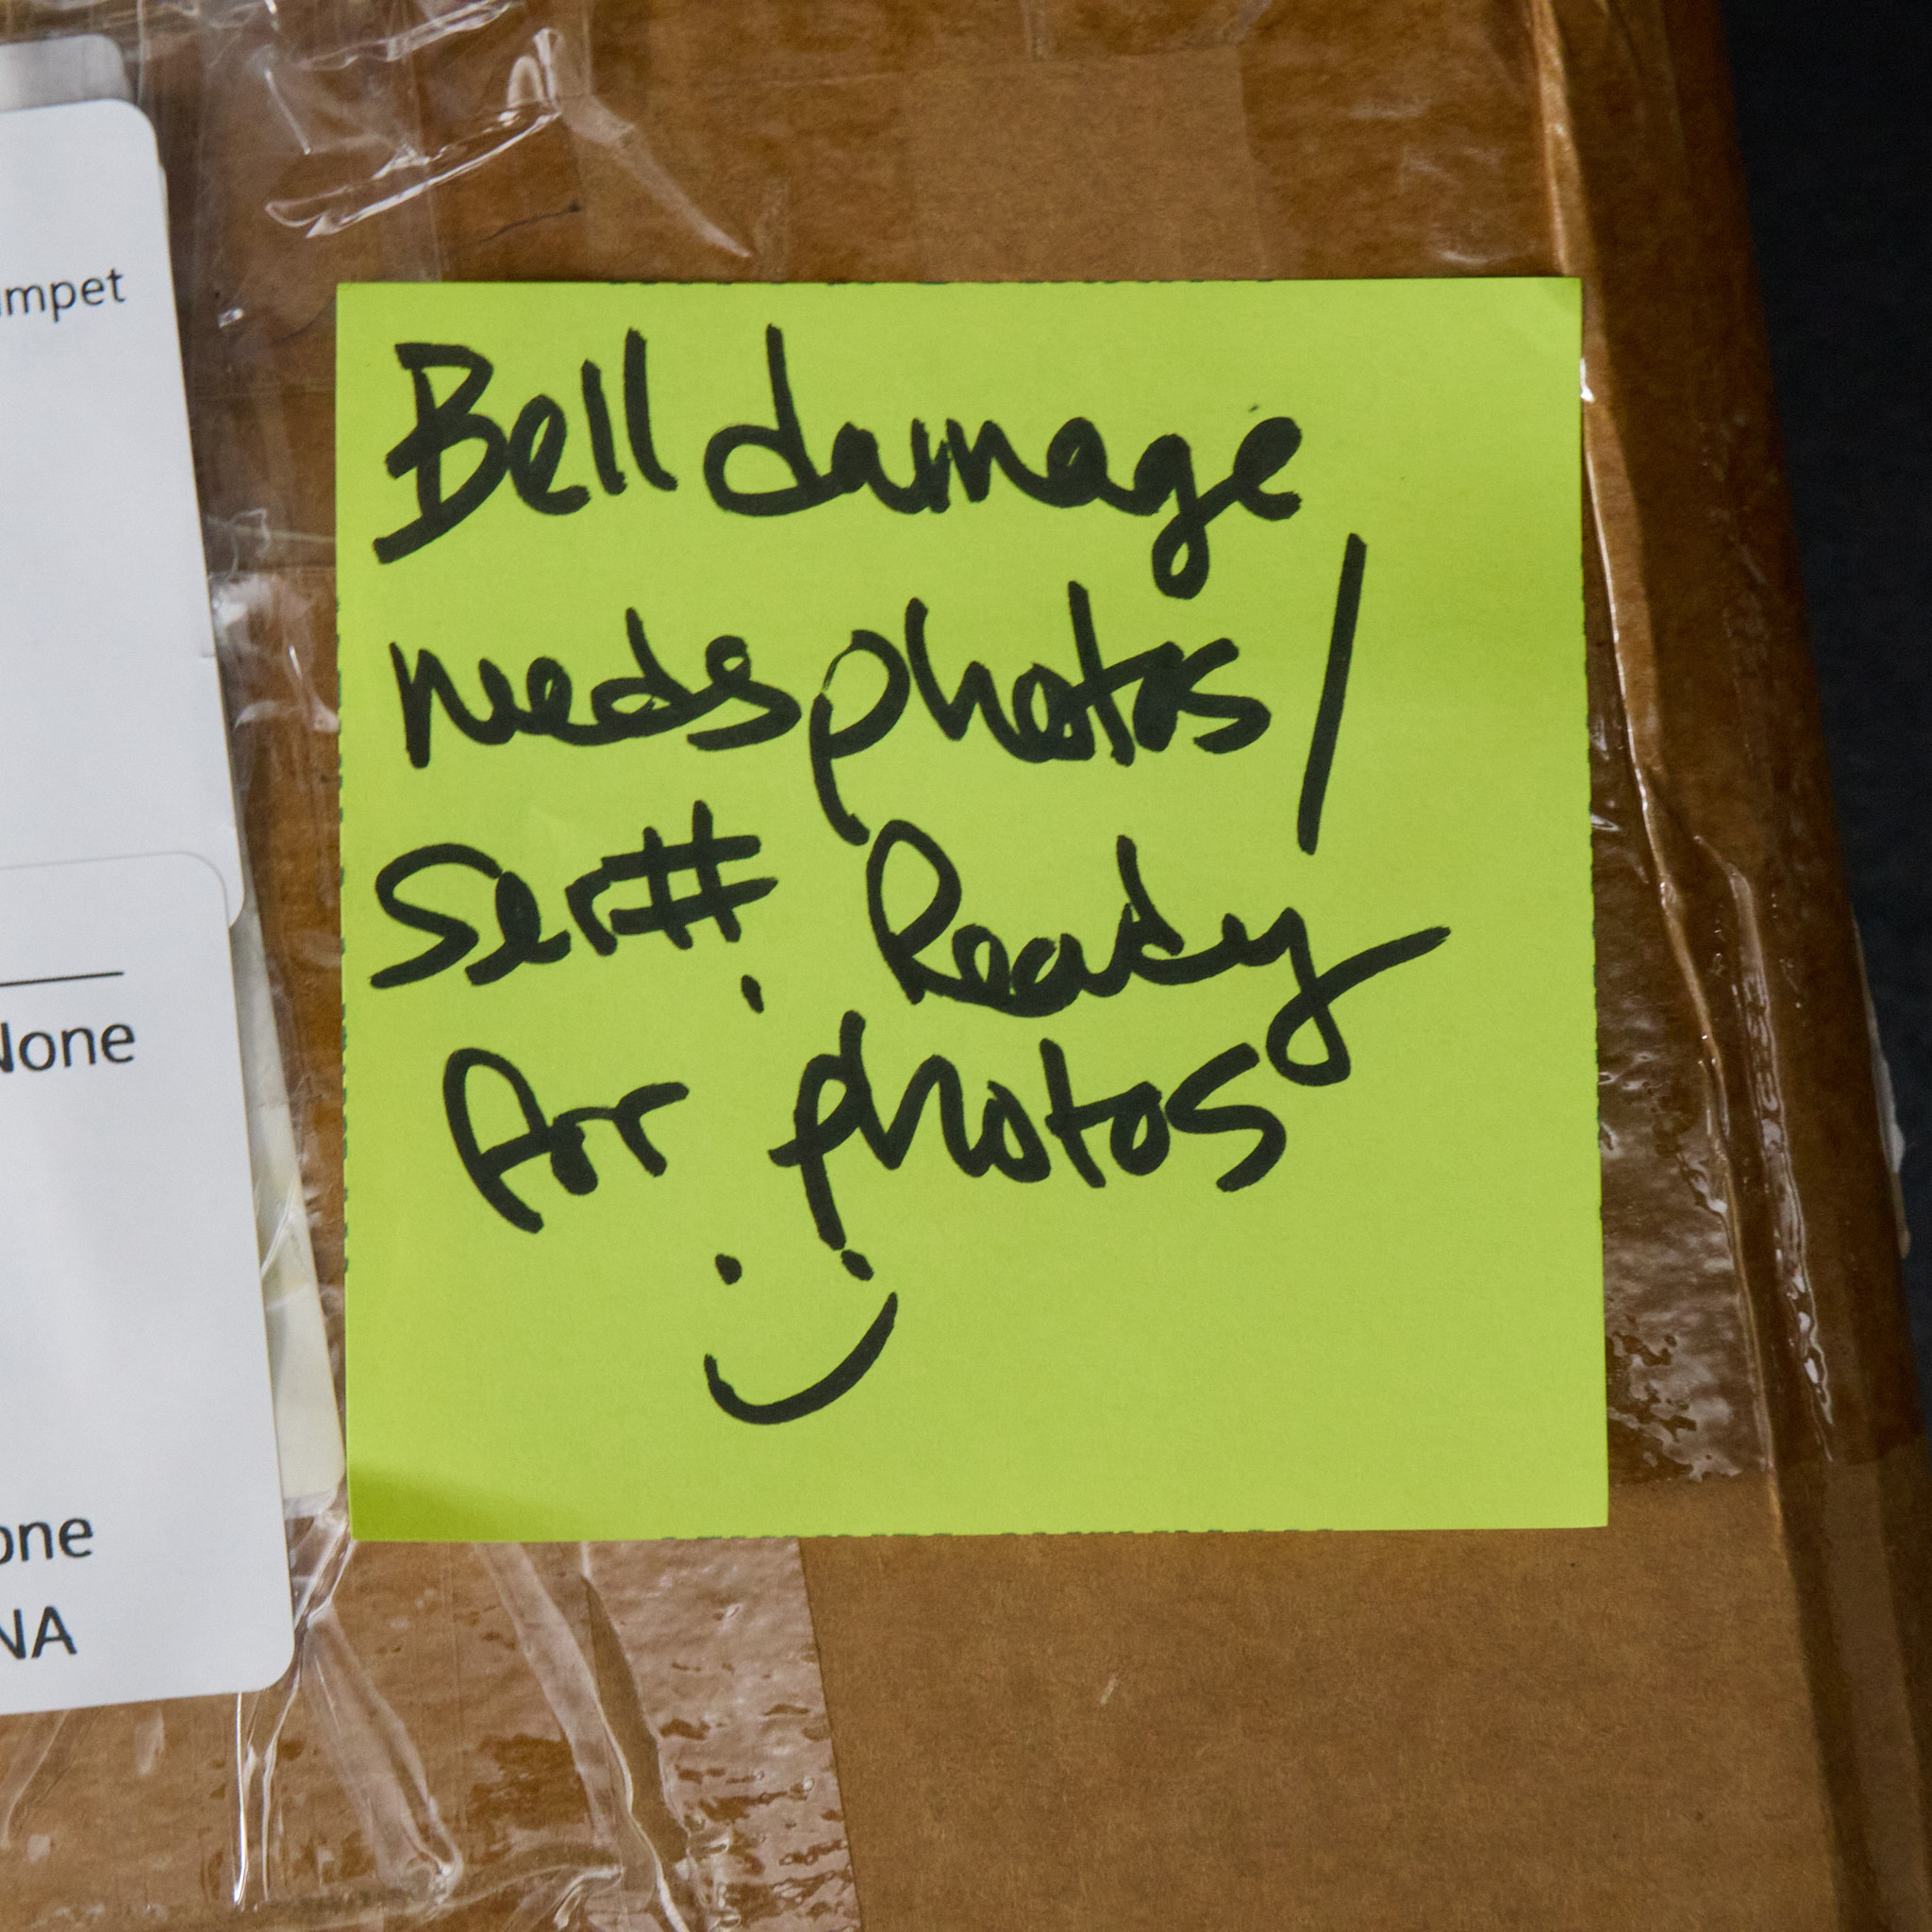 mpet
None
one
NA
Bell damage
needs photos/
Ser#. Ready
for photos